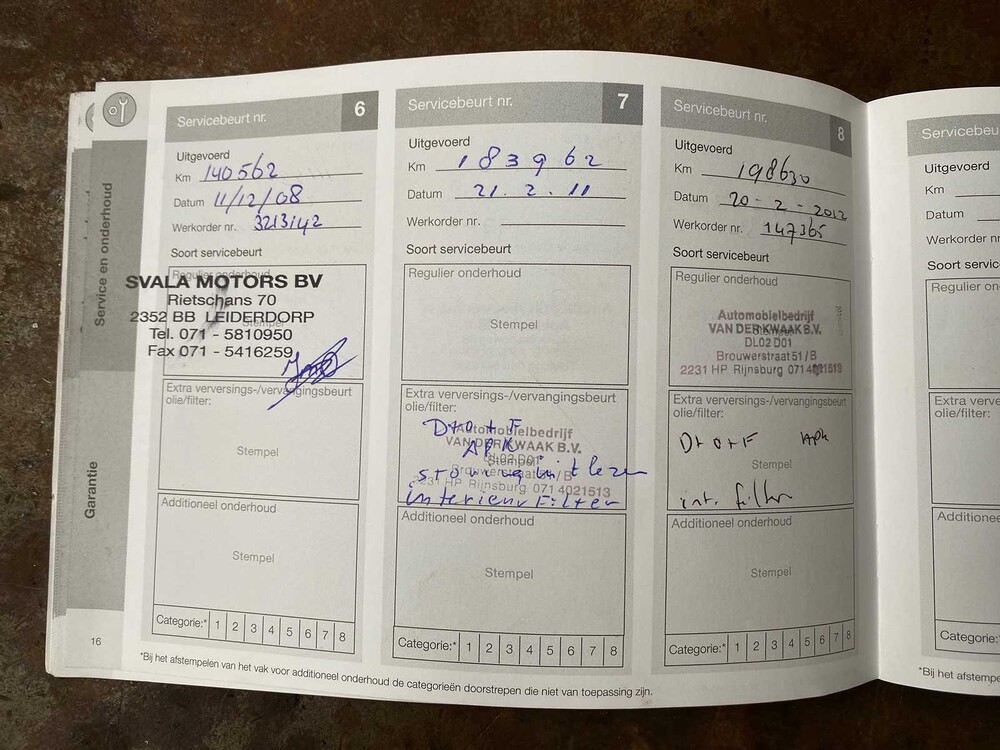 Service en onderhoud
Garantie
16
Servicebeurt nr. 6
Uitgevoerd
Km 140562
Datum 11/12/08
Werkorder nr. 3213142
Soort servicebeurt
Regulier onderhoud
SVALA MOTORS BV
Rietschans 70
2352 BB LEIDERDORP
Tel. 071 - 5810950
Fax 071 - 5416259
Extra verversings-/vervangingsbeurt
olie/filter:
Stempel
Additioneel onderhoud
Stempel
Categorie:* 1 2 3 4 5 6 7 8
Servicebeurt nr. 7
Uitgevoerd
Km 183962
Datum 21.2.11
Werkorder nr.
Soort servicebeurt
Regulier onderhoud
Stempel
Extra verversings-/vervangingsbeurt
olie/filter:
D+O+F
APK
storing uitlezen
interieur Filter
Automobielbedrijf
VAN DER KWAAK B.V.
DL02 D01
Stempel
Brouwerstraat 51/B
2231 HP Rijnsburg 071 4021513
Additioneel onderhoud
Stempel
Categorie:* 1 2 3 4 5 6 7 8
Servicebeurt nr. 8
Uitgevoerd
Km 198630
Datum 20-2-2012
Werkorder nr. 147365
Soort servicebeurt
Regulier onderhoud
Automobielbedrijf
VAN DER KWAAK B.V.
DL02 D01
Brouwerstraat 51/B
2231 HP Rijnsburg 071 4021513
Extra verversings-/vervangingsbeurt
olie/filter:
D+O+F APK
Stempel
int. filter
Additioneel onderhoud
Stempel
Categorie:* 1 2 3 4 5 6 7 8
*Bij het afstempelen van het vak voor additioneel onderhoud de categorieën doorstrepen die niet van toepassing zijn.
Servicebeu
Uitgevoerd
Km
Datum
Werkorder n
Soort servic
Regulier on
Extra verve
olie/filter:
Additione
Categorie:
*Bij het afstemp